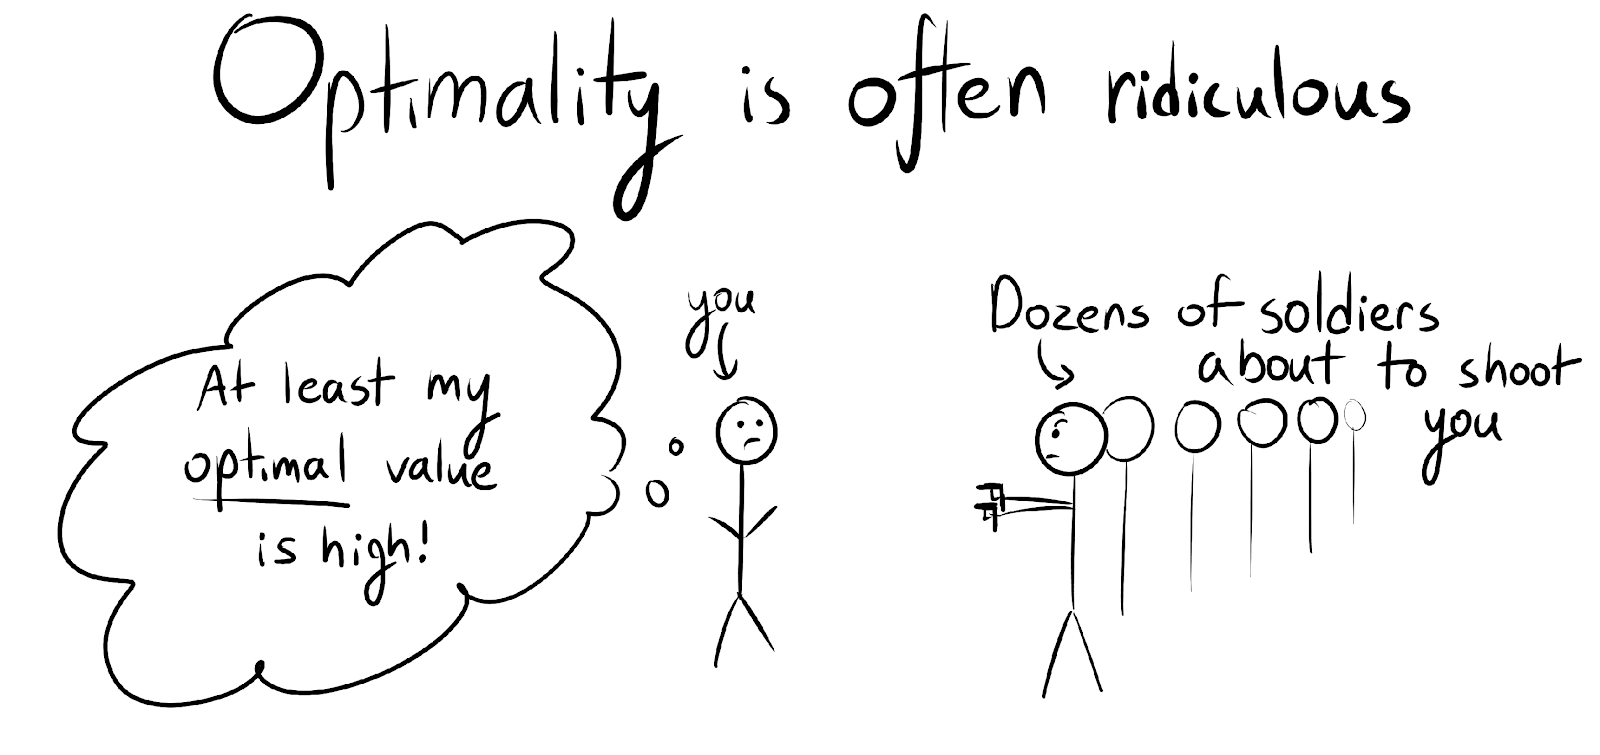 Optimality is often ridiculous
At least my
optimal value
is high!
you
Dozens of soldiers
about to shoot
you